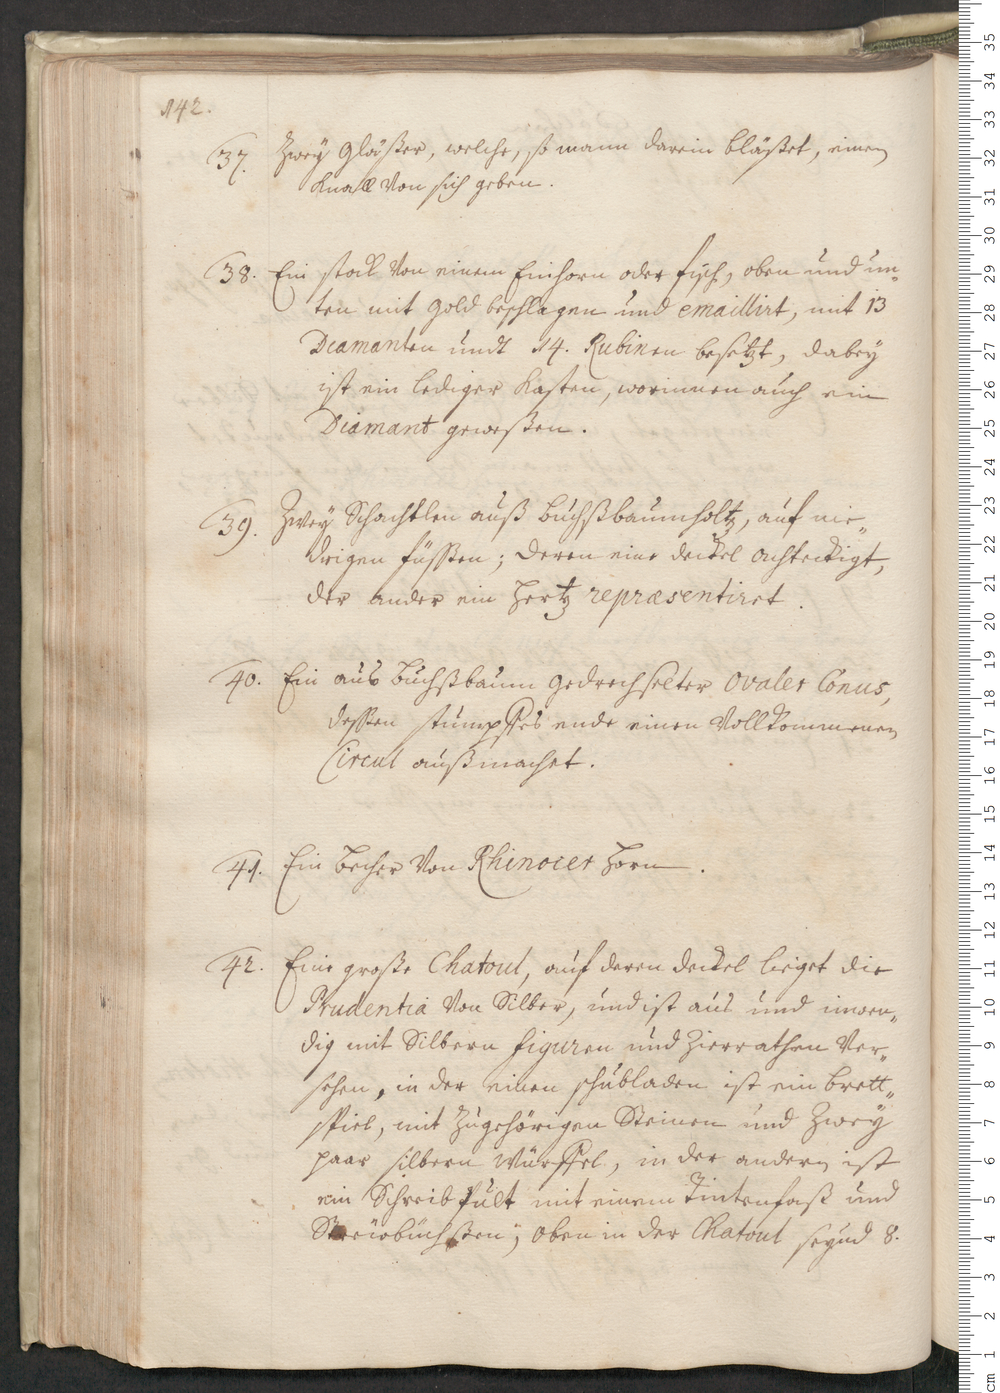 142.
37. Zwey Gläßer, welche, so mann darein bläßet, einen
Knall von sich geben.
38. Ein stock von einem Einhorn oder fisch, oben und un-
ten mit gold beschlagen und emaillirt, mit 13
Diamanten undt 14. Rubinen besetzt, dabey
ist ein lediger Kasten, worinnen auch ein
Diamant geweßen.
39. Zwey Schachtlen auß buchßbaumholtz, auf nie-
drigen füssen; deren eine deckel achteckigt,
der ander ein Hertz repræsentiret.
40. Ein aus buchßbaum gedrechselter Ovaler Conus,
dessen stumpffes ende einen vollkommenen
Circul außmachet.
41. Ein becher von Rhinocer Horn.
42. Eine große Chatoul, auf deren deckel lieget die
Prudentia von Silber, und ist aus und inwen-
dig mit Silbern figuren und Zierrathen ver-
sehen, in der einen schubladen ist ein brett-
spiel, mit zugehörigen Steinen und Zwey
paar silbern Würffel, in der andern ist
ein Schreibpult mit einem Tintenfaß und
Streübüchßen; oben in der Chatoul seynd 8.
35
34
33
32
31
30
29
28
27
26
25
24
23
22
21
20
19
18
17
16
15
14
13
12
11
10
9
8
7
6
5
4
3
2
1
cm